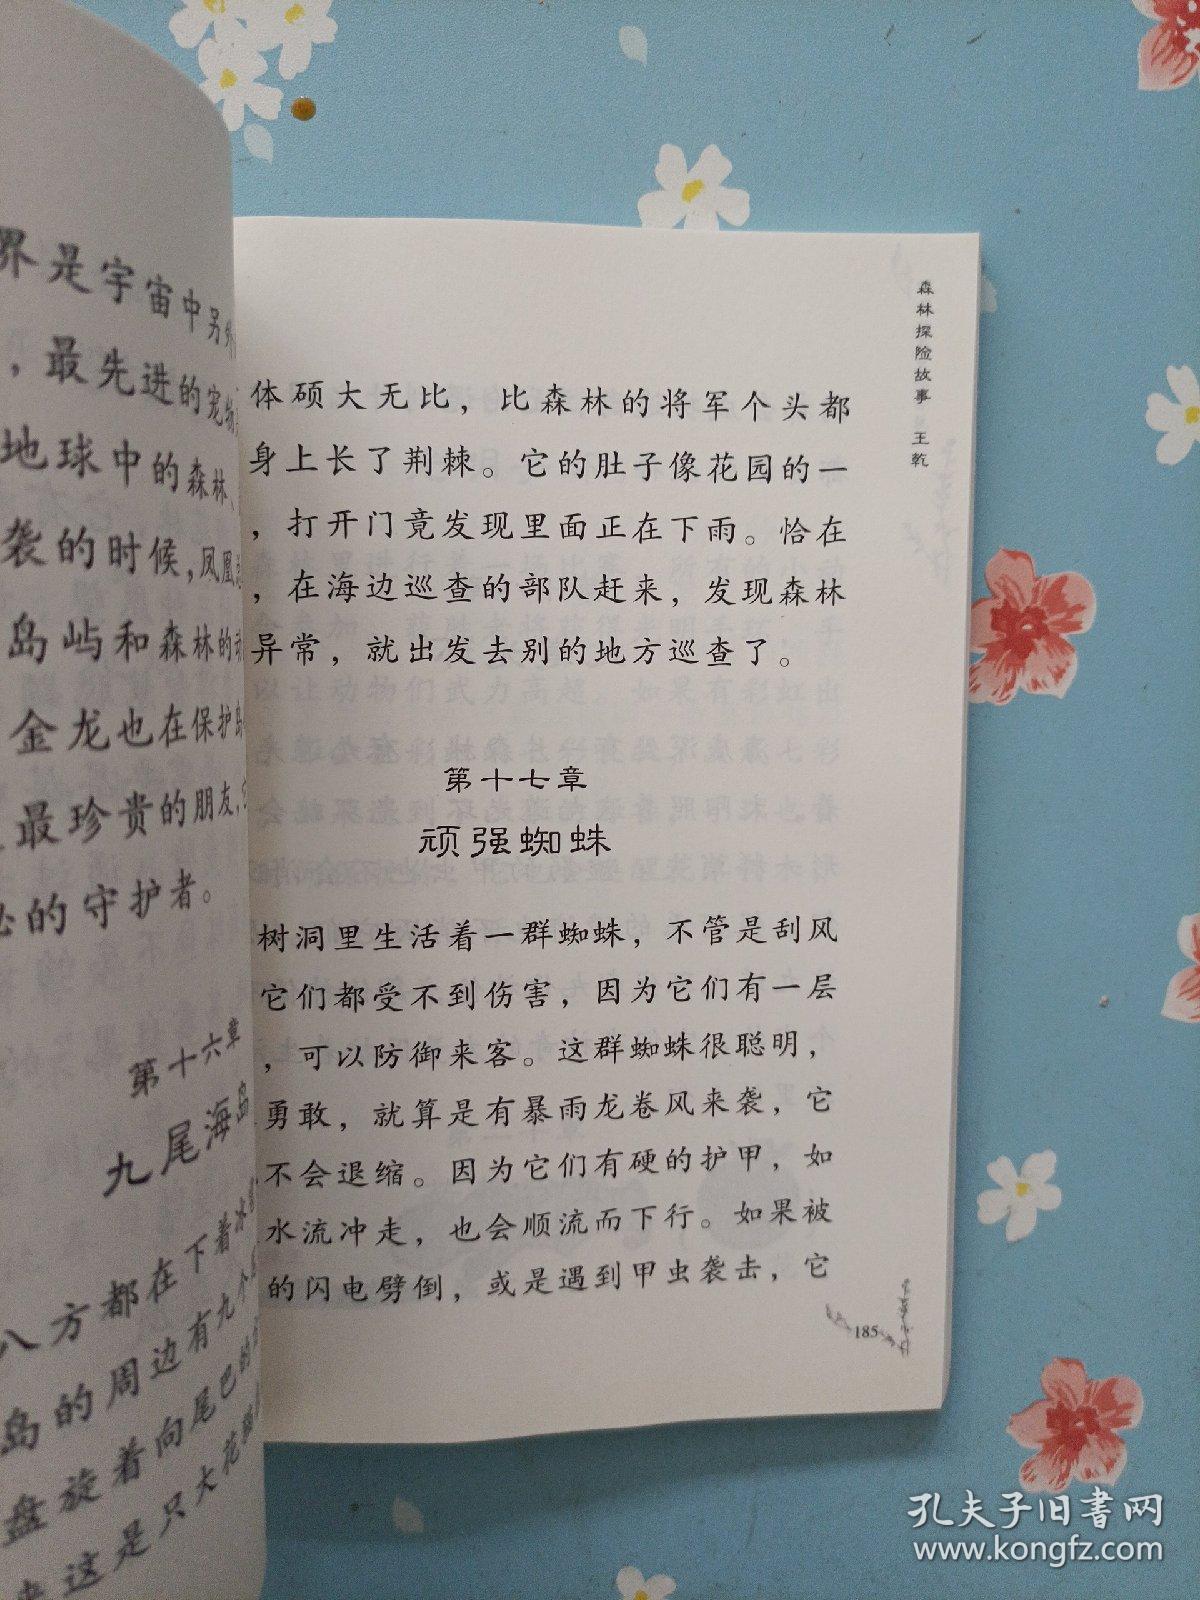 界是宇宙中另外
，最先进的宠物
地球中的森林、
袭的时候，凤凰
岛屿和森林的
金龙也在保护岛
最珍贵的朋友，
的守护者。
第十六章
九尾海岛
八方都在下着冰
岛的周边有九个
盘旋着向尾巴的
来这是只大花
森林探险故事 王乾
体硕大无比，比森林的将军个头都
身上长了荆棘。它的肚子像花园的一
，打开门竟发现里面正在下雨。恰在
，在海边巡查的部队赶来，发现森林
异常，就出发去别的地方巡查了。
第十七章
顽强蜘蛛
树洞里生活着一群蜘蛛，不管是刮风
它们都受不到伤害，因为它们有一层
，可以防御来客。这群蜘蛛很聪明，
勇敢，就算是有暴雨龙卷风来袭，它
不会退缩。因为它们有硬的护甲，如
水流冲走，也会顺流而下行。如果被
的闪电劈倒，或是遇到甲虫袭击，它
185
孔夫子旧书网
www.kongfz.com